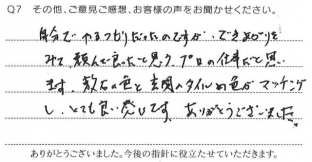 Q7 その他、ご意見ご感想、お客様の声をお聞かせください。
自分でやるつもりだったのですが、できあがりを
みて頼んで良かったと思う。プロの仕事だと思い
ます。敷石の色と玄関のタイルの色がマッチング
し、とても良い感じです。ありがとうございました。
ありがとうございました。今後の指針に役立たせていただきます。